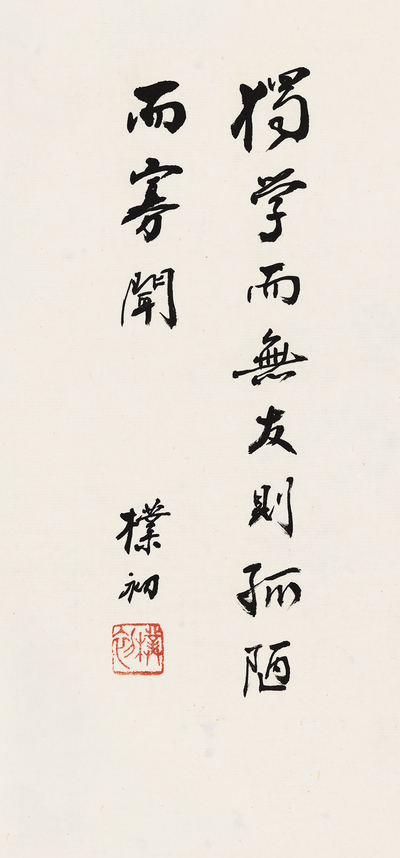 獨学而無友則孤陋
而寡聞
樸初
樸初